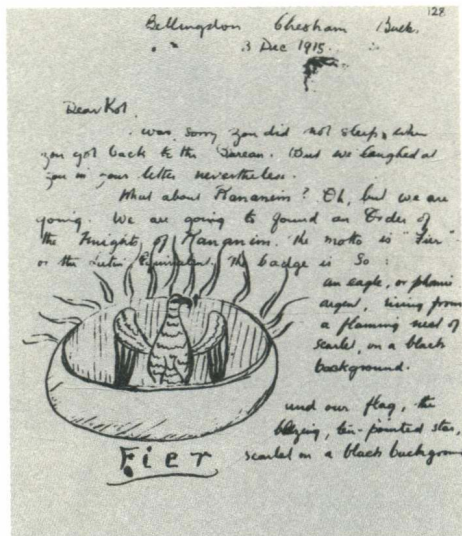 128
Bellingdon Chesham Buck.
3 Dec 1915.
Dear Kot,
was sorry you did not sleep, when
you got back to the Bureau. But we laughed at
you in your letter nevertheless.
What about Rananim? Oh, but we are
going. We are going to found an Order of
the Knights of Rananim. The motto is "Fier"
or the Latin Equivalent. The badge is So:
an eagle, or phœnix
argent, rising from
a flaming nest of
scarlet, on a black
background.
and our flag, the
blazing, ten-pointed star,
scarlet on a black background
Fier